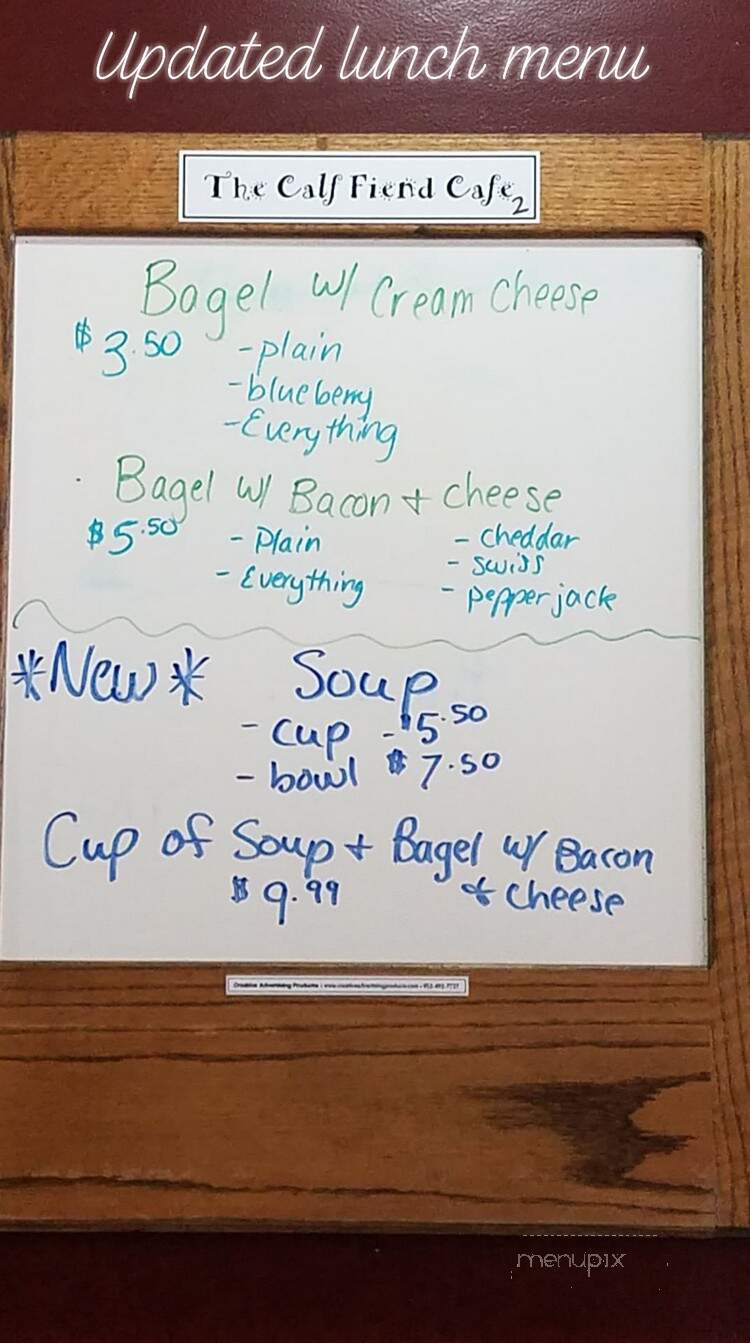 Updated lunch menu
The Calf Fiend Cafe 2
Bagel w/ Cream Cheese
$3.50 - plain
- blueberry
- Everything
Bagel w/ Bacon + cheese
$5.50 - Plain - cheddar
- Everything - swiss
- pepper jack
*New* Soup
- cup - $5.50
- bowl $7.50
Cup of Soup + Bagel w/ Bacon
$9.99 & cheese
Creative Advertising Products | www.creativeadvertisingproducts.com
menupix